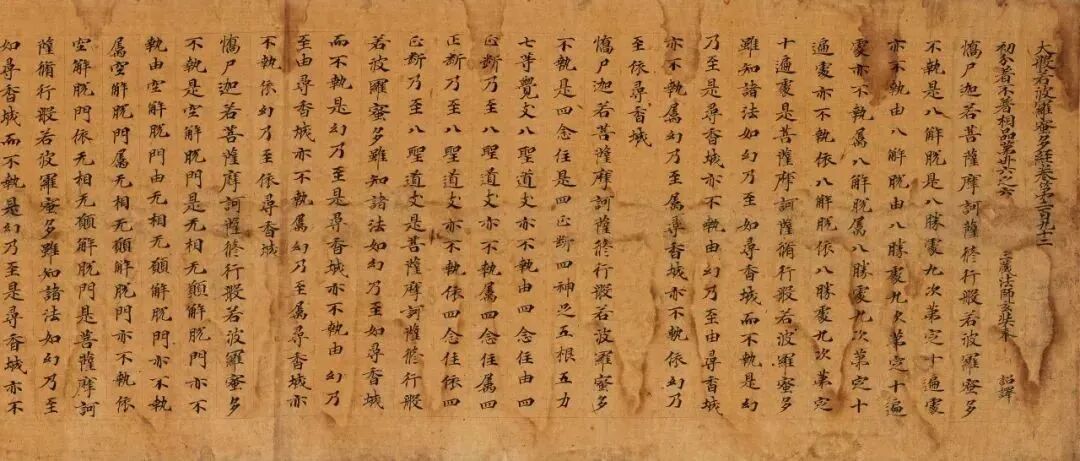 大般若波羅蜜多經卷第二百九十二
初分著不著相品第卅六之六 三藏法師玄奘奉 詔譯
憍尸迦若菩薩摩訶薩修行般若波羅蜜多
不執是八解脫是八勝處九次第定十遍處
亦不執由八解脫由八勝處九次第定十遍
處亦不執屬八解脫屬八勝處九次第定十
遍處亦不執依八解脫依八勝處九次第定
十遍處是菩薩摩訶薩脩行般若波羅蜜多
雖知諸法如幻乃至如尋香城而不執是幻
乃至是尋香城亦不執由幻乃至由尋香城
亦不執属幻乃至属尋香城亦不執依幻乃
至依尋香城
憍尸迦若菩薩摩訶薩修行般若波羅蜜多
不執是四念住是四正斷四神足五根五力
七等覺支八聖道支亦不執由四念住由四
正斷乃至八聖道支亦不執属四念住属四
正斷乃至八聖道支亦不執依四念住依四
正斷乃至八聖道支是菩薩摩訶薩修行般
若波羅蜜多雖知諸法如幻乃至如尋香城
而不執是幻乃至是尋香城亦不執由幻乃
至由尋香城亦不執属幻乃至属尋香城亦
不執依幻乃至依尋香城
憍尸迦若菩薩摩訶薩修行般若波羅蜜多
不執是空解脫門是无相无願解脫門亦不
執由空解脫門由无相无願解脫門亦不執
属空解脫門属无相无願解脫門亦不執依
空解脫門依无相无願解脫門是菩薩摩訶
薩脩行般若波羅蜜多雖知諸法如幻乃至
如尋香城而不執是幻乃至是尋香城亦不